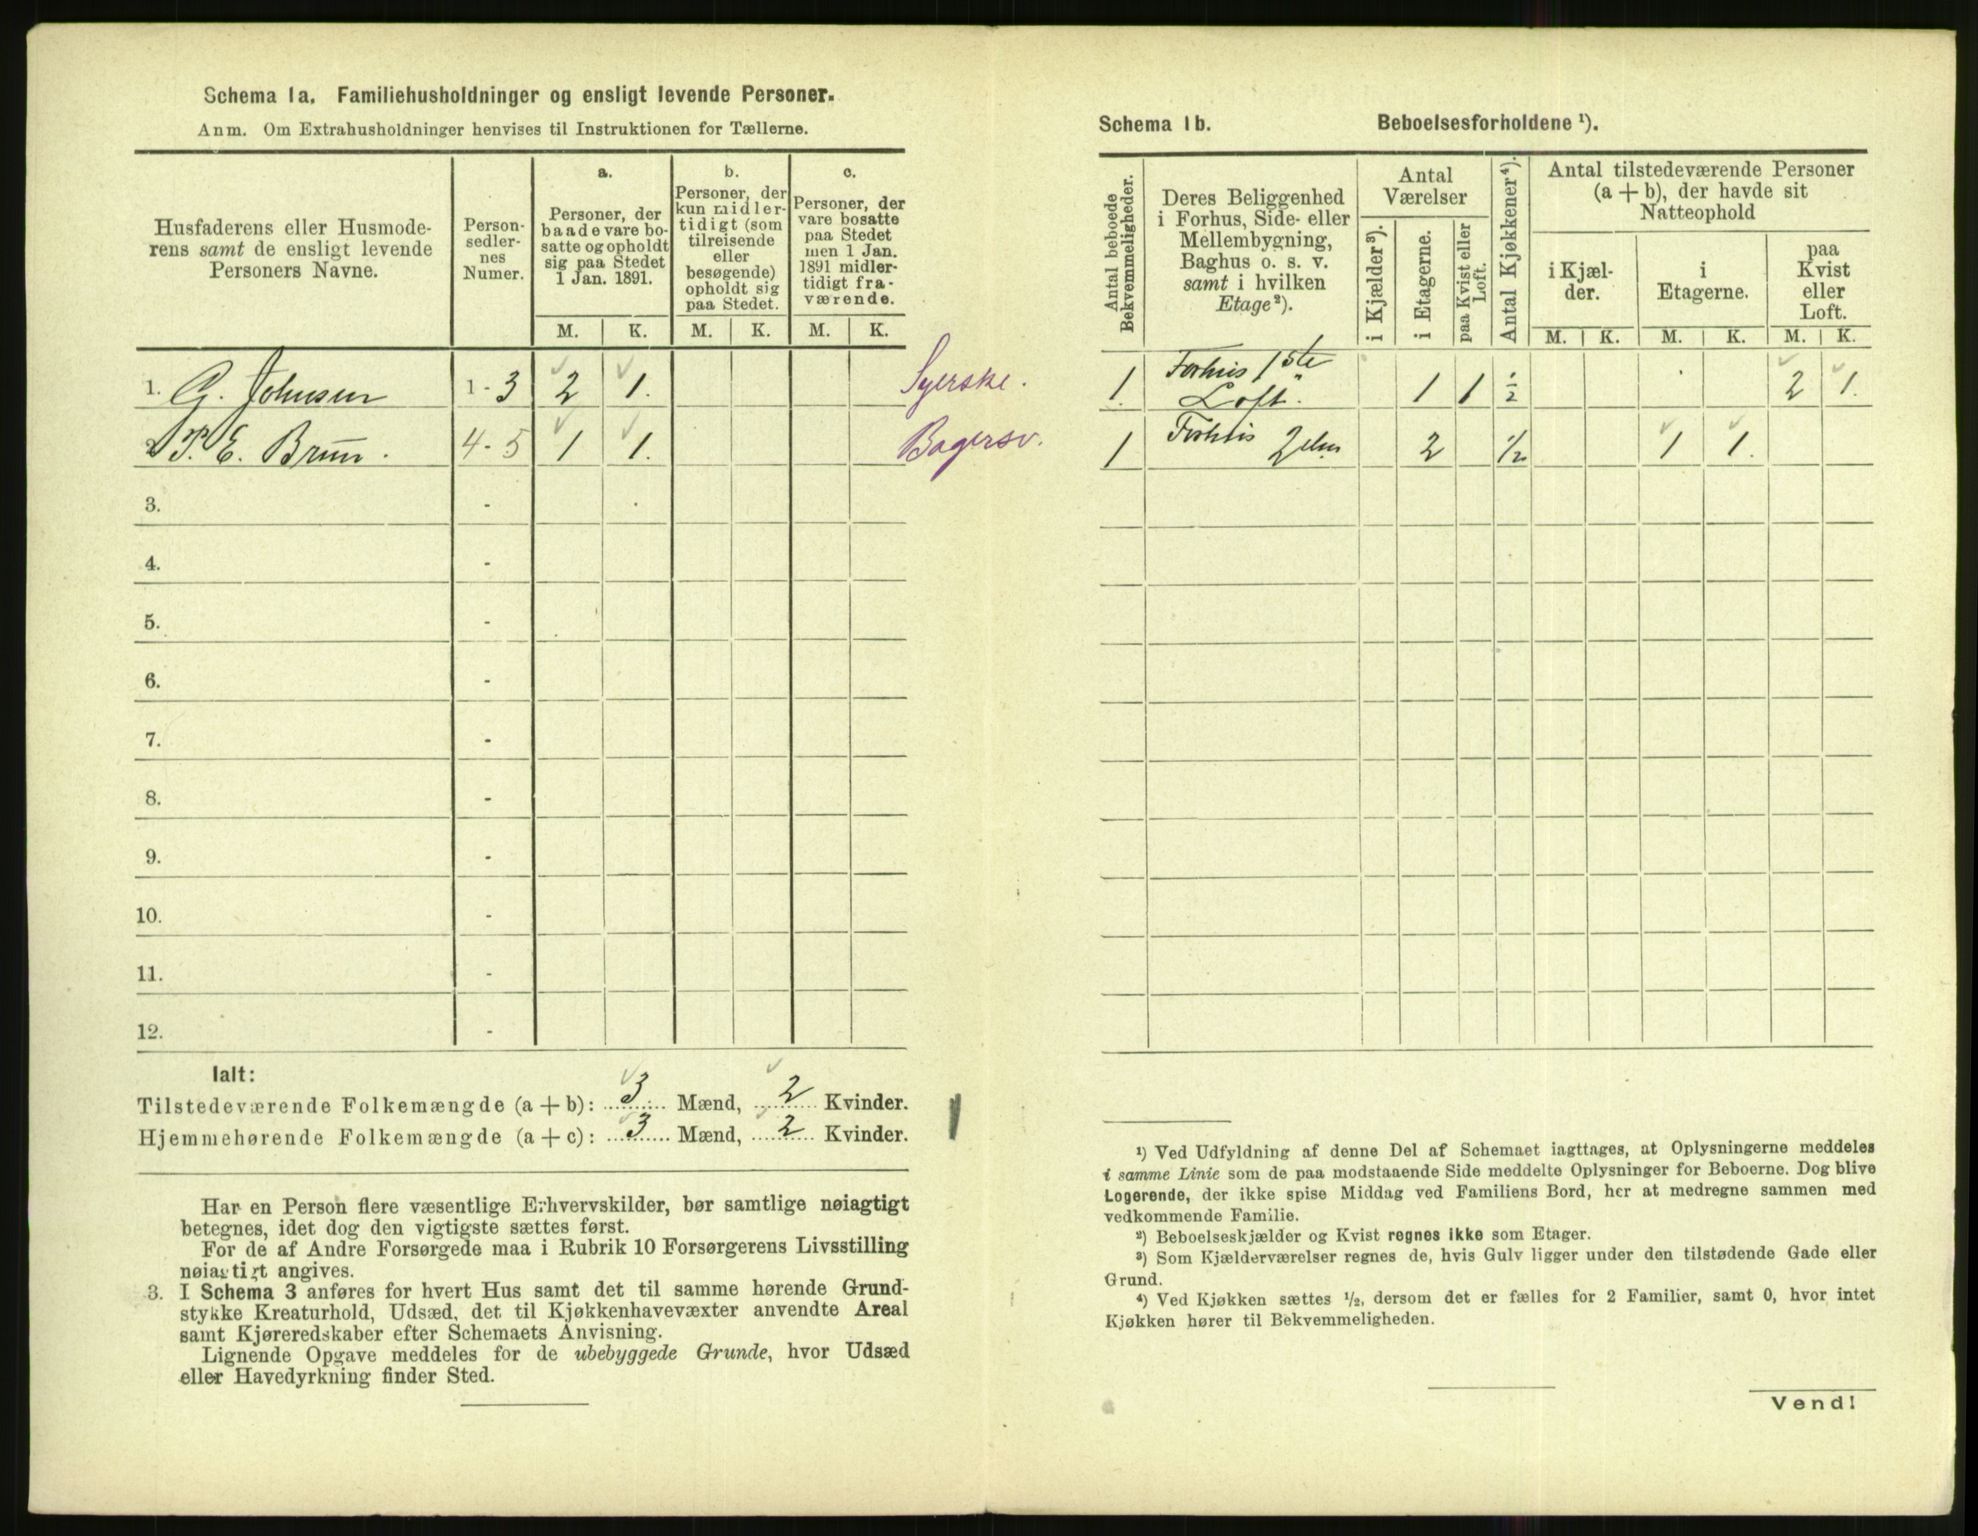 Schema 1a. Familiehusholdninger og ensligt levende Personer.
Anm. Om Extrahusholdninger henvises til Instruktionen for Tællerne.
Husfaderens eller Husmode-
rens samt de ensligt levende
Personers Navne.
Person-
sedler-
nes
Numer.
a.
Personer, der
baade vare bo-
satte og opholdt
sig paa Stedet
1 Jan. 1891.
b.
Personer, der
kun midler-
tidigt (som
tilreisende
eller
besøgende)
opholdt sig
paa Stedet.
c.
Personer, der
vare bosatte
paa Stedet
men 1 Jan.
1891 midler-
tidigt fra-
værende.
M. K. M. K. M. K.
1. G. Johnsen 1 - 3 2 1. Syerske.
2 P. E. Brun. 4 - 5 1 1. Bagersv.
3. -
4. -
5. -
6. -
7. -
8. -
9. -
10. -
11. -
12. -
Ialt:
Tilstedeværende Folkemængde (a + b): 3 Mænd, 2 Kvinder.
Hjemmehørende Folkemængde (a + c): 3 Mænd, 2 Kvinder.
Har en Person flere væsentlige Erhvervskilder, bør samtlige nøiagtigt
betegnes, idet dog den vigtigste sættes først.
For de af Andre Forsørgede maa i Rubrik 10 Forsørgerens Livsstilling
nøiagtigt angives.
3. I Schema 3 anføres for hvert Hus samt det til samme hørende Grund-
stykke Kreaturhold, Udsæd, det til Kjøkkenhavevæxter anvendte Areal
samt Kjøreredskaber efter Schemaets Anvisning.
Lignende Opgave meddeles for de ubebyggede Grunde, hvor Udsæd
eller Havedyrkning finder Sted.
Schema 1b. Beboelsesforholdene ¹).
Antal beboede
Bekvemmeligheder.
Deres Beliggenhed
i Forhus, Side- eller
Mellembygning,
Baghus o. s. v.
samt i hvilken
Etage²).
Antal
Værelser
i Kjælder³).
i Etagerne.
paa Kvist eller
Loft.
Antal Kjøkkener⁴).
Antal tilstedeværende Personer
(a + b), der havde sit
Natteophold
i Kjæl-
der.
i
Etagerne.
paa
Kvist
eller
Loft.
M. K. M. K. M. K.
1. Forhus 1ste
Loft. 1 1 ½ 2 1.
1 Forhus 2 ½ 1 1.
¹) Ved Udfyldning af denne Del af Schemaet iagttages, at Oplysningerne meddeles
i samme Linie som de paa modstaaende Side meddelte Oplysninger for Beboerne. Dog blive
Logerende, der ikke spise Middag ved Familiens Bord, her at medregne sammen med
vedkommende Familie.
²) Beboelseskjælder og Kvist regnes ikke som Etager.
³) Som Kjælderværelser regnes de, hvis Gulv ligger under den tilstødende Gade eller
Grund.
⁴) Ved Kjøkken sættes ½, dersom det er fælles for 2 Familier, samt 0, hvor intet
Kjøkken hører til Bekvemmeligheden.
Vend!